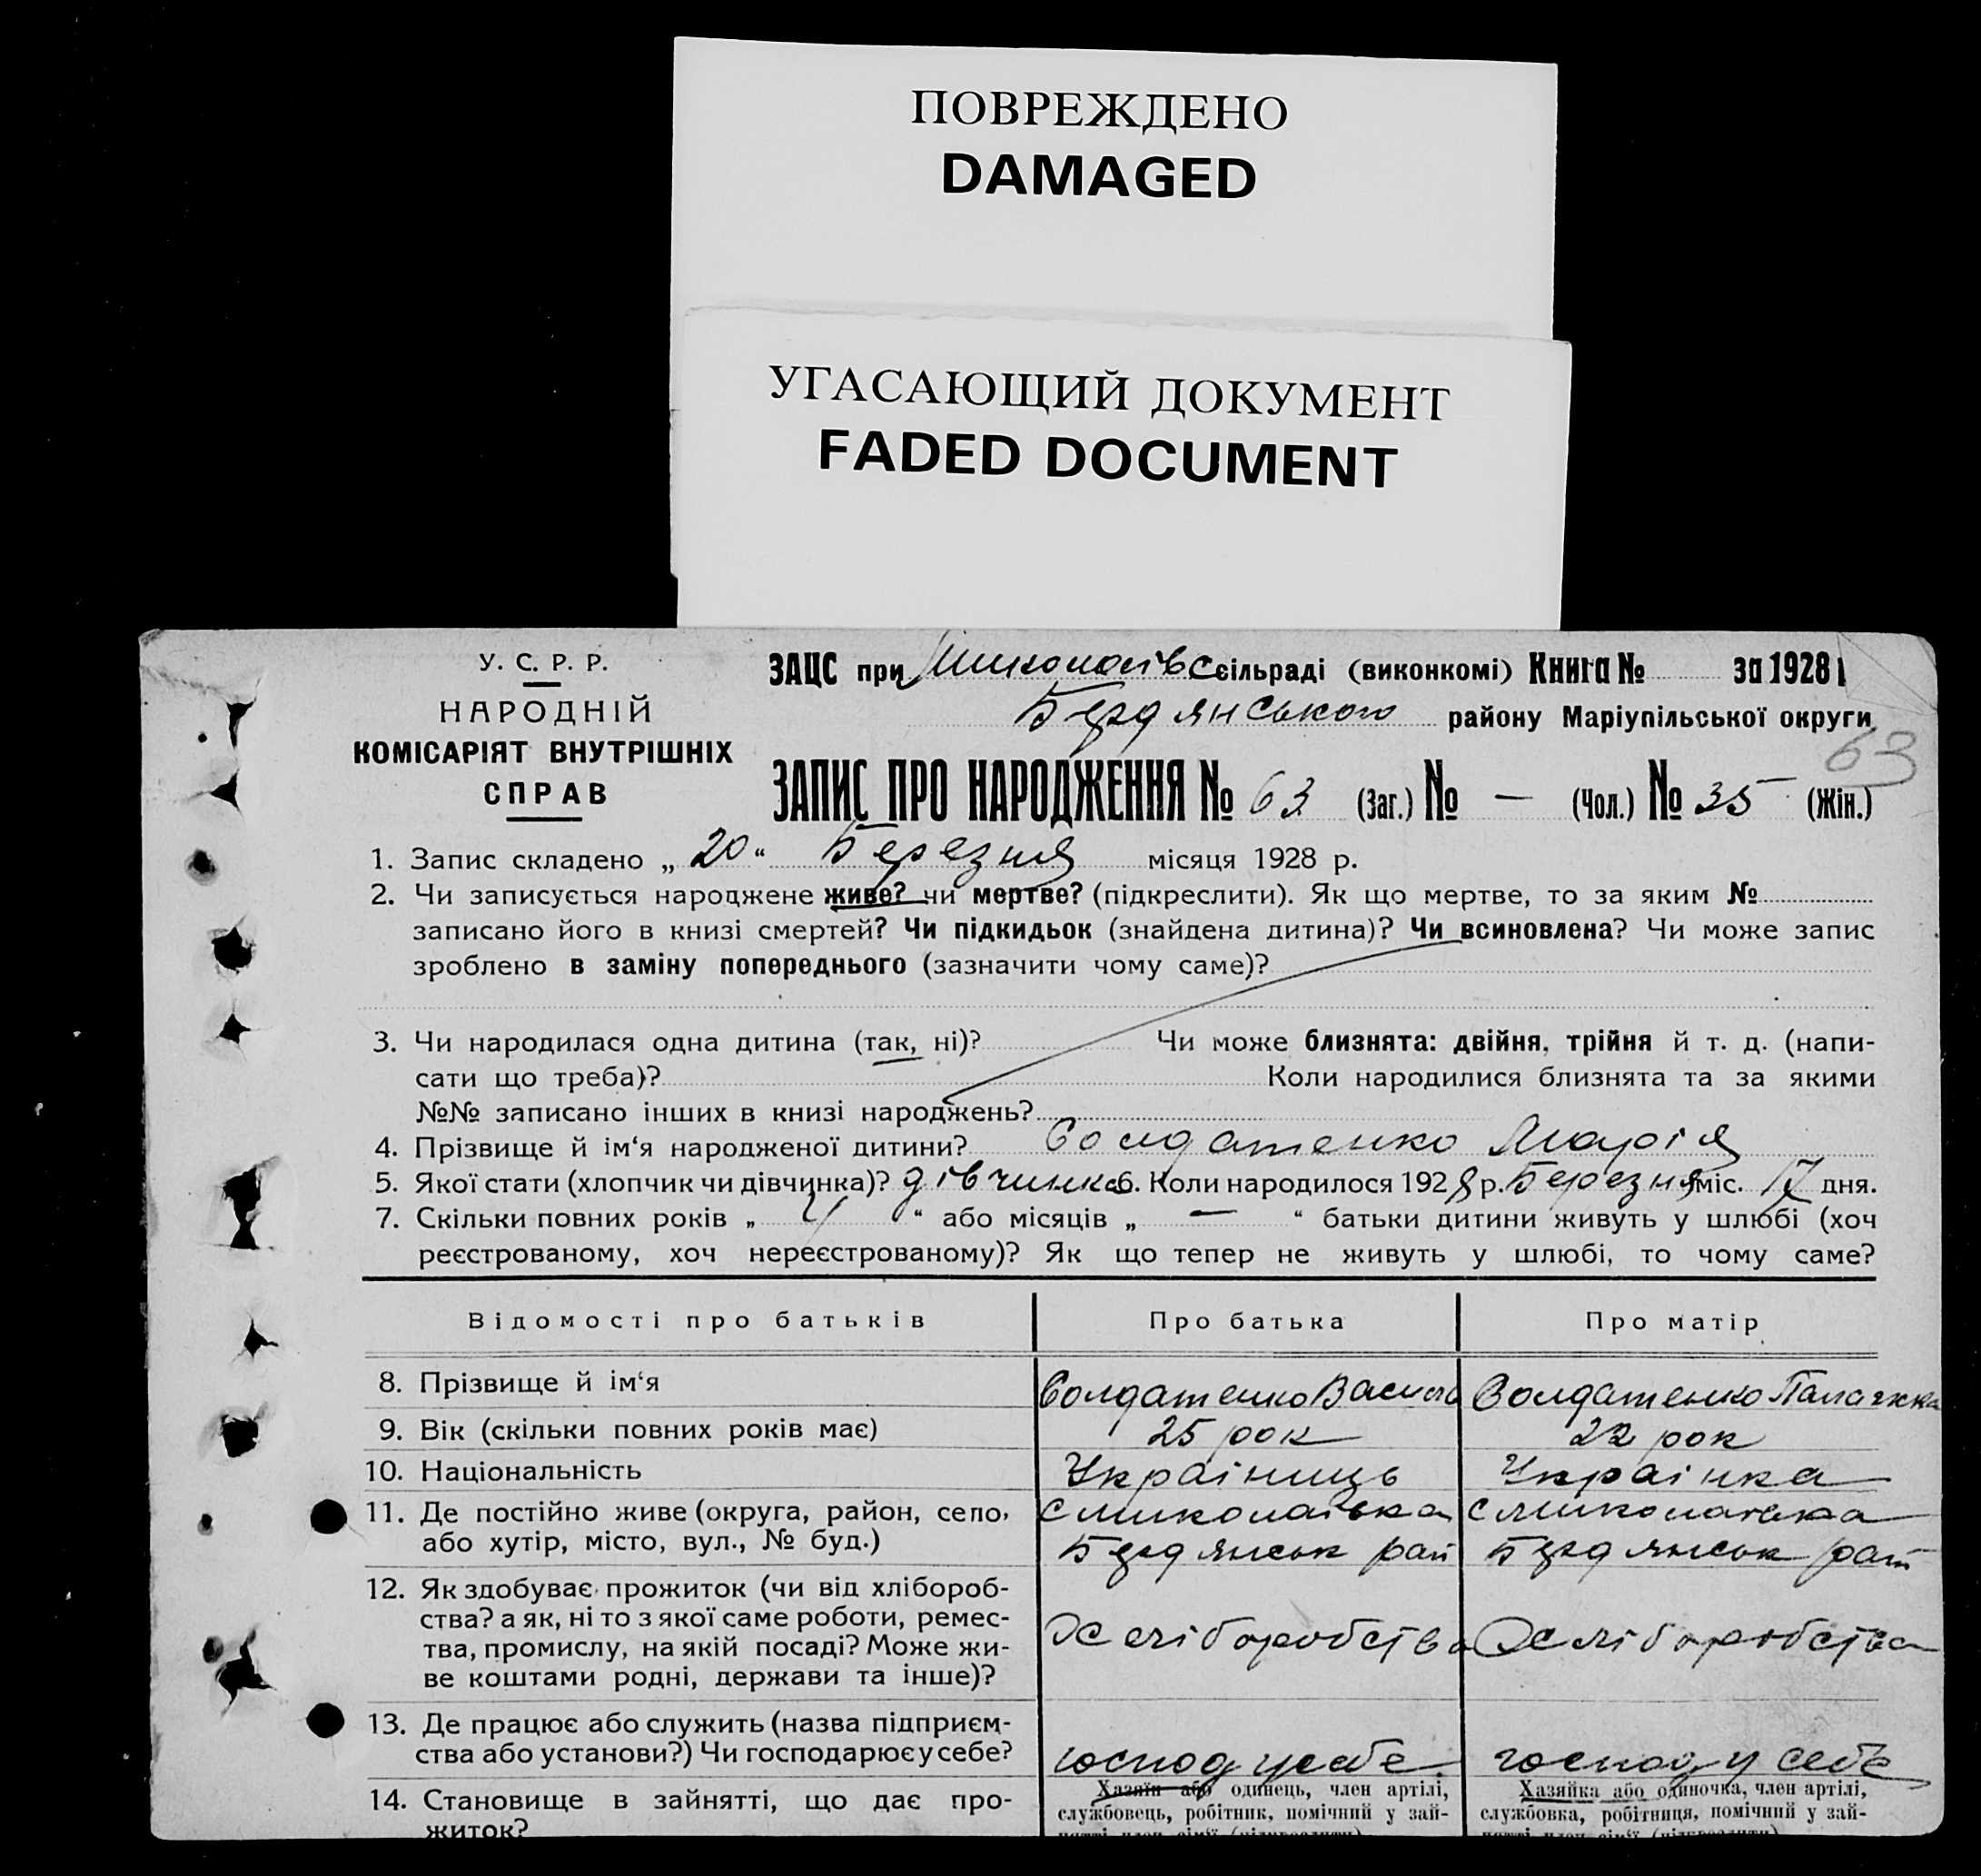 ПОВРЕЖДЕНО
DAMAGED
УГАСАЮЩИЙ ДОКУМЕНТ
FADED DOCUMENT
У. С. Р. Р.
НАРОДНІЙ
КОМІСАРІЯТ ВНУТРІШНІХ
СПРАВ
ЗАЦС при Миколаівс сільраді (виконкомі) Книга № за 1928
Бердянського району Маріупільської округи
63
ЗАПИС ПРО НАРОДЖЕННЯ № 63 (Заг.) № — (Чол.) № 35 (Жін.)
1. Запис складено „ 20 “ Березня місяця 1928 р.
2. Чи записується народжене живе? чи мертве? (підкреслити). Як що мертве, то за яким №
записано його в книзі смертей? Чи підкидьок (знайдена дитина)? Чи всиновлена? Чи може запис
зроблено в заміну попереднього (зазначити чому саме)?
3. Чи народилася одна дитина (так, ні)? Чи може близнята: двійня, трійня й т. д. (напи-
сати що треба)? Коли народилися близнята та за якими
№№ записано інших в книзі народжень?
4. Прізвище й ім‘я народженої дитини? Солдатенко Марія
5. Якої стати (хлопчик чи дівчинка)? дівчинка 6. Коли народилося 1928 р. Березня міс. 17 дня.
7. Скільки повних років „ 4 “ або місяців „ — “ батьки дитини живуть у шлюбі (хоч
реєстрованому, хоч нереєстрованому)? Як що тепер не живуть у шлюбі, то чому саме?
Відомості про батьків Про батька Про матір
8. Прізвище й ім‘я Солдатенко Солдатенко Палажка
9. Вік (скільки повних років має) 25 рок 22 рок
10. Національність Україниць Українка
11. Де постійно живе (округа, район, село, с Миколаівка с Миколаівка
або хутір, місто, вул., № буд.) Бердянськ рай Бердянськ рай
12. Як здобуває прожиток (чи від хлібороб-
ства? а як, ні то з якої саме роботи, ремес-
тва, промислу, на якій посаді? Може жи- Хліборобства Хліборобства
ве коштами родні, держави та інше)?
13. Де працює або служить (назва підприєм-
ства або установи?) Чи господарює у себе? господ у себе господ у себе
14. Становище в зайнятті, що дає про- Хазяїн або одинець, член артілі, Хазяйка або одиночка, член артілі,
житок? службовець, робітник, помічний у зай- службовка, робітниця, помічний у зай-